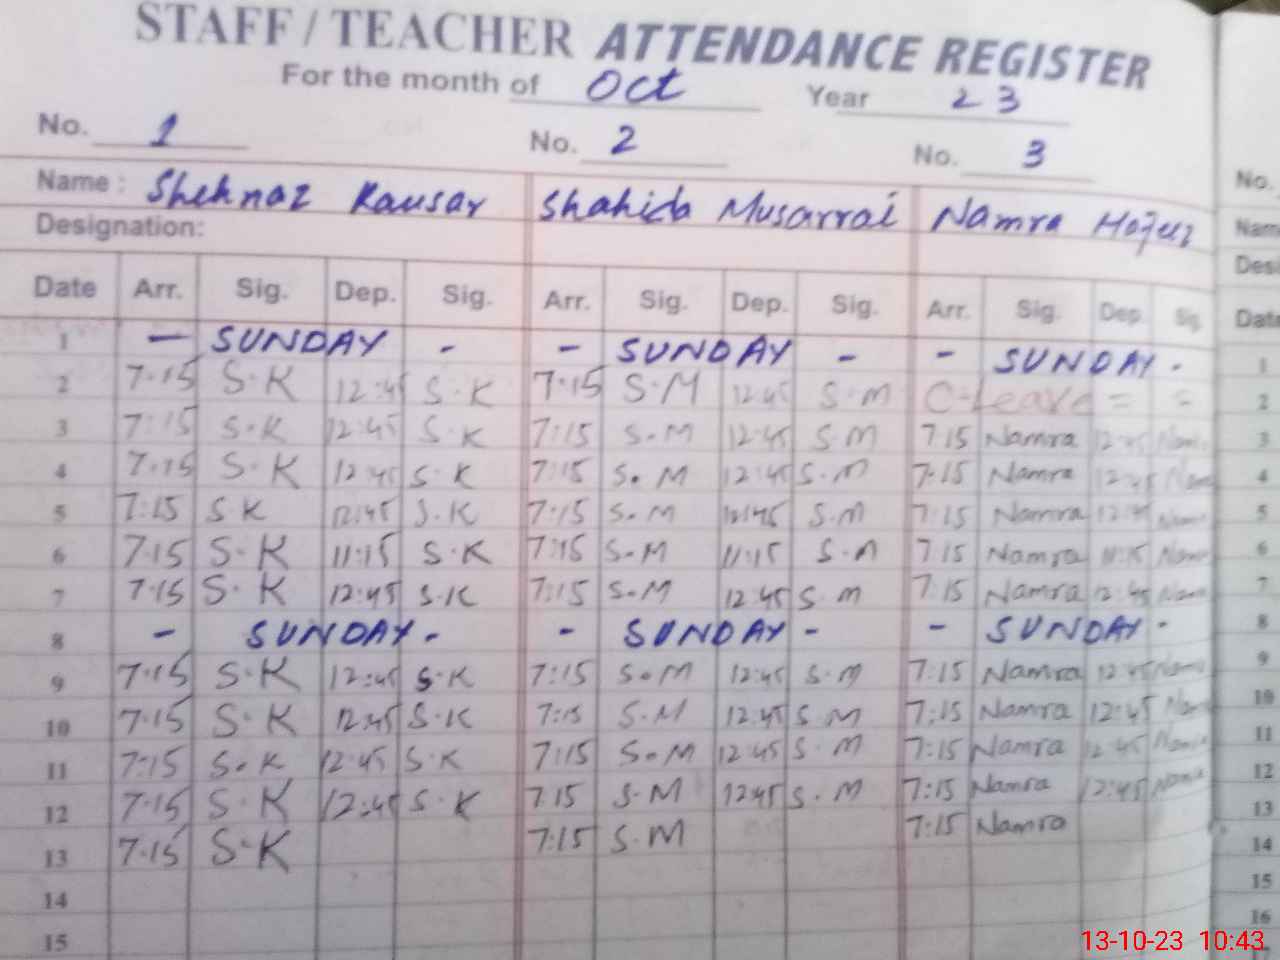 STAFF / TEACHER ATTENDANCE REGISTER
For the month of Oct Year 23
No. 1 No. 2 No. 3 No.
Name : Shehnaz Kausar Shahida Musarrat Namra Nam
Designation: Desi
Date Arr. Sig. Dep. Sig. Arr. Sig. Dep. Sig. Arr. Sig. Dep. Sig. Date
1 - SUNDAY - - SUNDAY - - SUNDAY - 1
2 7·15 S·K 12:45 S·K 7:15 S·M 12:45 S·M C-Leave = = 2
3 7:15 S·K 12:45 S·K 7:15 S.M 12:45 S.M 7:15 Namra 12:45 3
4 7:15 S·K 12:45 S·K 7:15 S.M 12:45 S.M 7:15 Namra 12:45 4
5 7:15 SK 12:45 S.K 7:15 S.M 12:45 S.M 7:15 Namra 12:45 5
6 7:15 S·K 11:15 S·K 7:15 S.M 11:15 S·M 7:15 Namra 11:15 6
7 7:15 S·K 12:45 S.K 7:15 S.M 12:45 S·M 7:15 Namra 12:45 7
8 - SUNDAY - - SUNDAY - - SUNDAY - 8
9 7:15 S·K 12:45 S·K 7:15 S.M 12:45 S·M 7:15 Namra 12:45 9
10 7:15 S·K 12:45 S·K 7:15 S.M 12:45 S·M 7:15 Namra 12:45 10
11 7:15 S.K 12:45 S·K 7:15 S.M 12:45 S·M 7:15 Namra 12:45 11
12 7:15 S·K 12:45 S·K 7:15 S·M 12:45 S·M 7:15 Namra 12:45 12
13 7:15 S·K 7:15 S.M 7:15 Namra 13
14 14
15 15
16
13-10-23 10:43